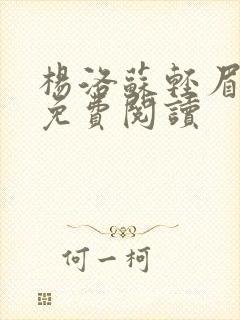 楊洛蘇輕眉
免費閱讀
何一柯